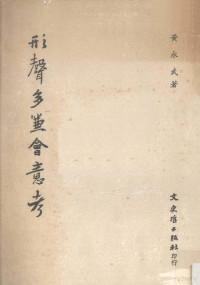 黃永武著
形聲多兼會意考
文史哲出版社印行